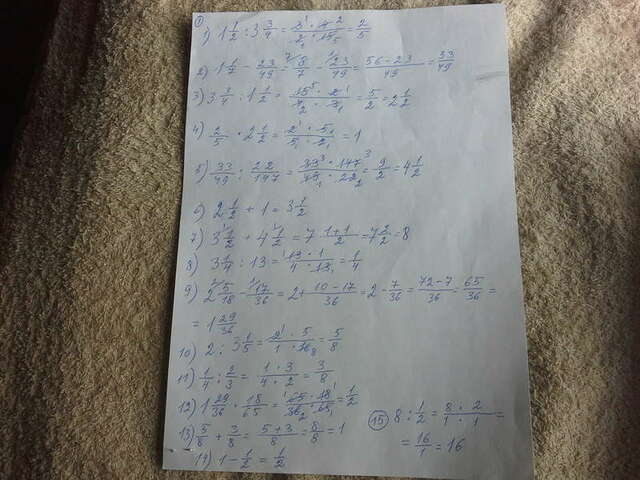 ①
1) 1 1/2 : 3 3/4 = 3 · 4 / 2 · 15 = 2/5
2) 1 1/7 - 23/49 = 8/7 - 23/49 = 56-23/49 = 33/49
3) 3 3/4 : 1 1/2 = 15 · 2 / 4 · 3 = 5/2 = 2 1/2
4) 2/5 · 2 1/2 = 2 · 5 / 5 · 2 = 1
5) 33/49 : 22/147 = 33 · 147 / 49 · 22 = 9/2 = 4 1/2
6) 2 1/2 + 1 = 3 1/2
7) 3 1/2 + 4 1/2 = 7 1+1/2 = 7 2/2 = 8
8) 3 1/4 : 13 = 13 · 1 / 4 · 13 = 1/4
9) 2 5/18 - 17/36 = 2 + 10-17/36 = 2 - 7/36 = 72-7/36 = 65/36 =
= 1 29/36
10) 2 : 3 1/5 = 2 · 5 / 1 · 16 = 5/8
11) 1/4 : 2/3 = 1 · 3 / 4 · 2 = 3/8
12) 1 29/36 · 18/65 = 65 · 18 / 36 · 65 = 1/2
13) 5/8 + 3/8 = 5+3/8 = 8/8 = 1
14) 1 - 1/2 = 1/2
⑮ 8 : 1/2 = 8 · 2 / 1 · 1 =
= 16/1 = 16